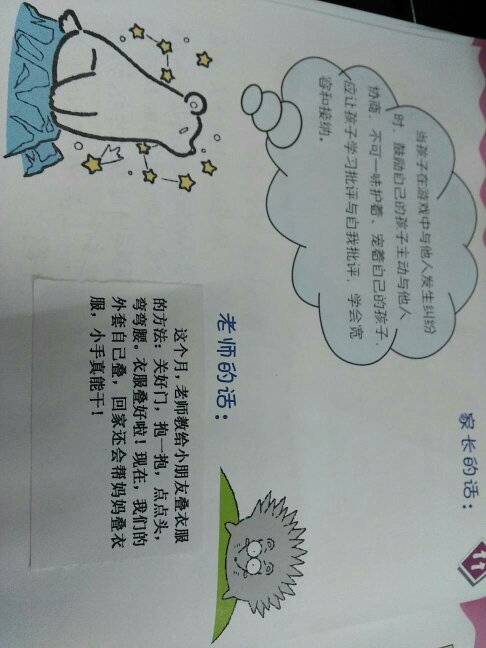 家长的话：
当孩子在游戏中与他人发生纠纷
时，鼓励自己的孩子主动与他人
协商，不可一味护着、宠着自己的孩子，
应让孩子学习批评与自我批评，学会宽
容和接纳。
老师的话：
这个月，老师教给小朋友叠衣服
的方法：关好门，抱一抱，点点头，
弯弯腰。衣服叠好啦！现在，我们的
外套自己叠，回家还会帮妈妈叠衣
服，小手真能干！